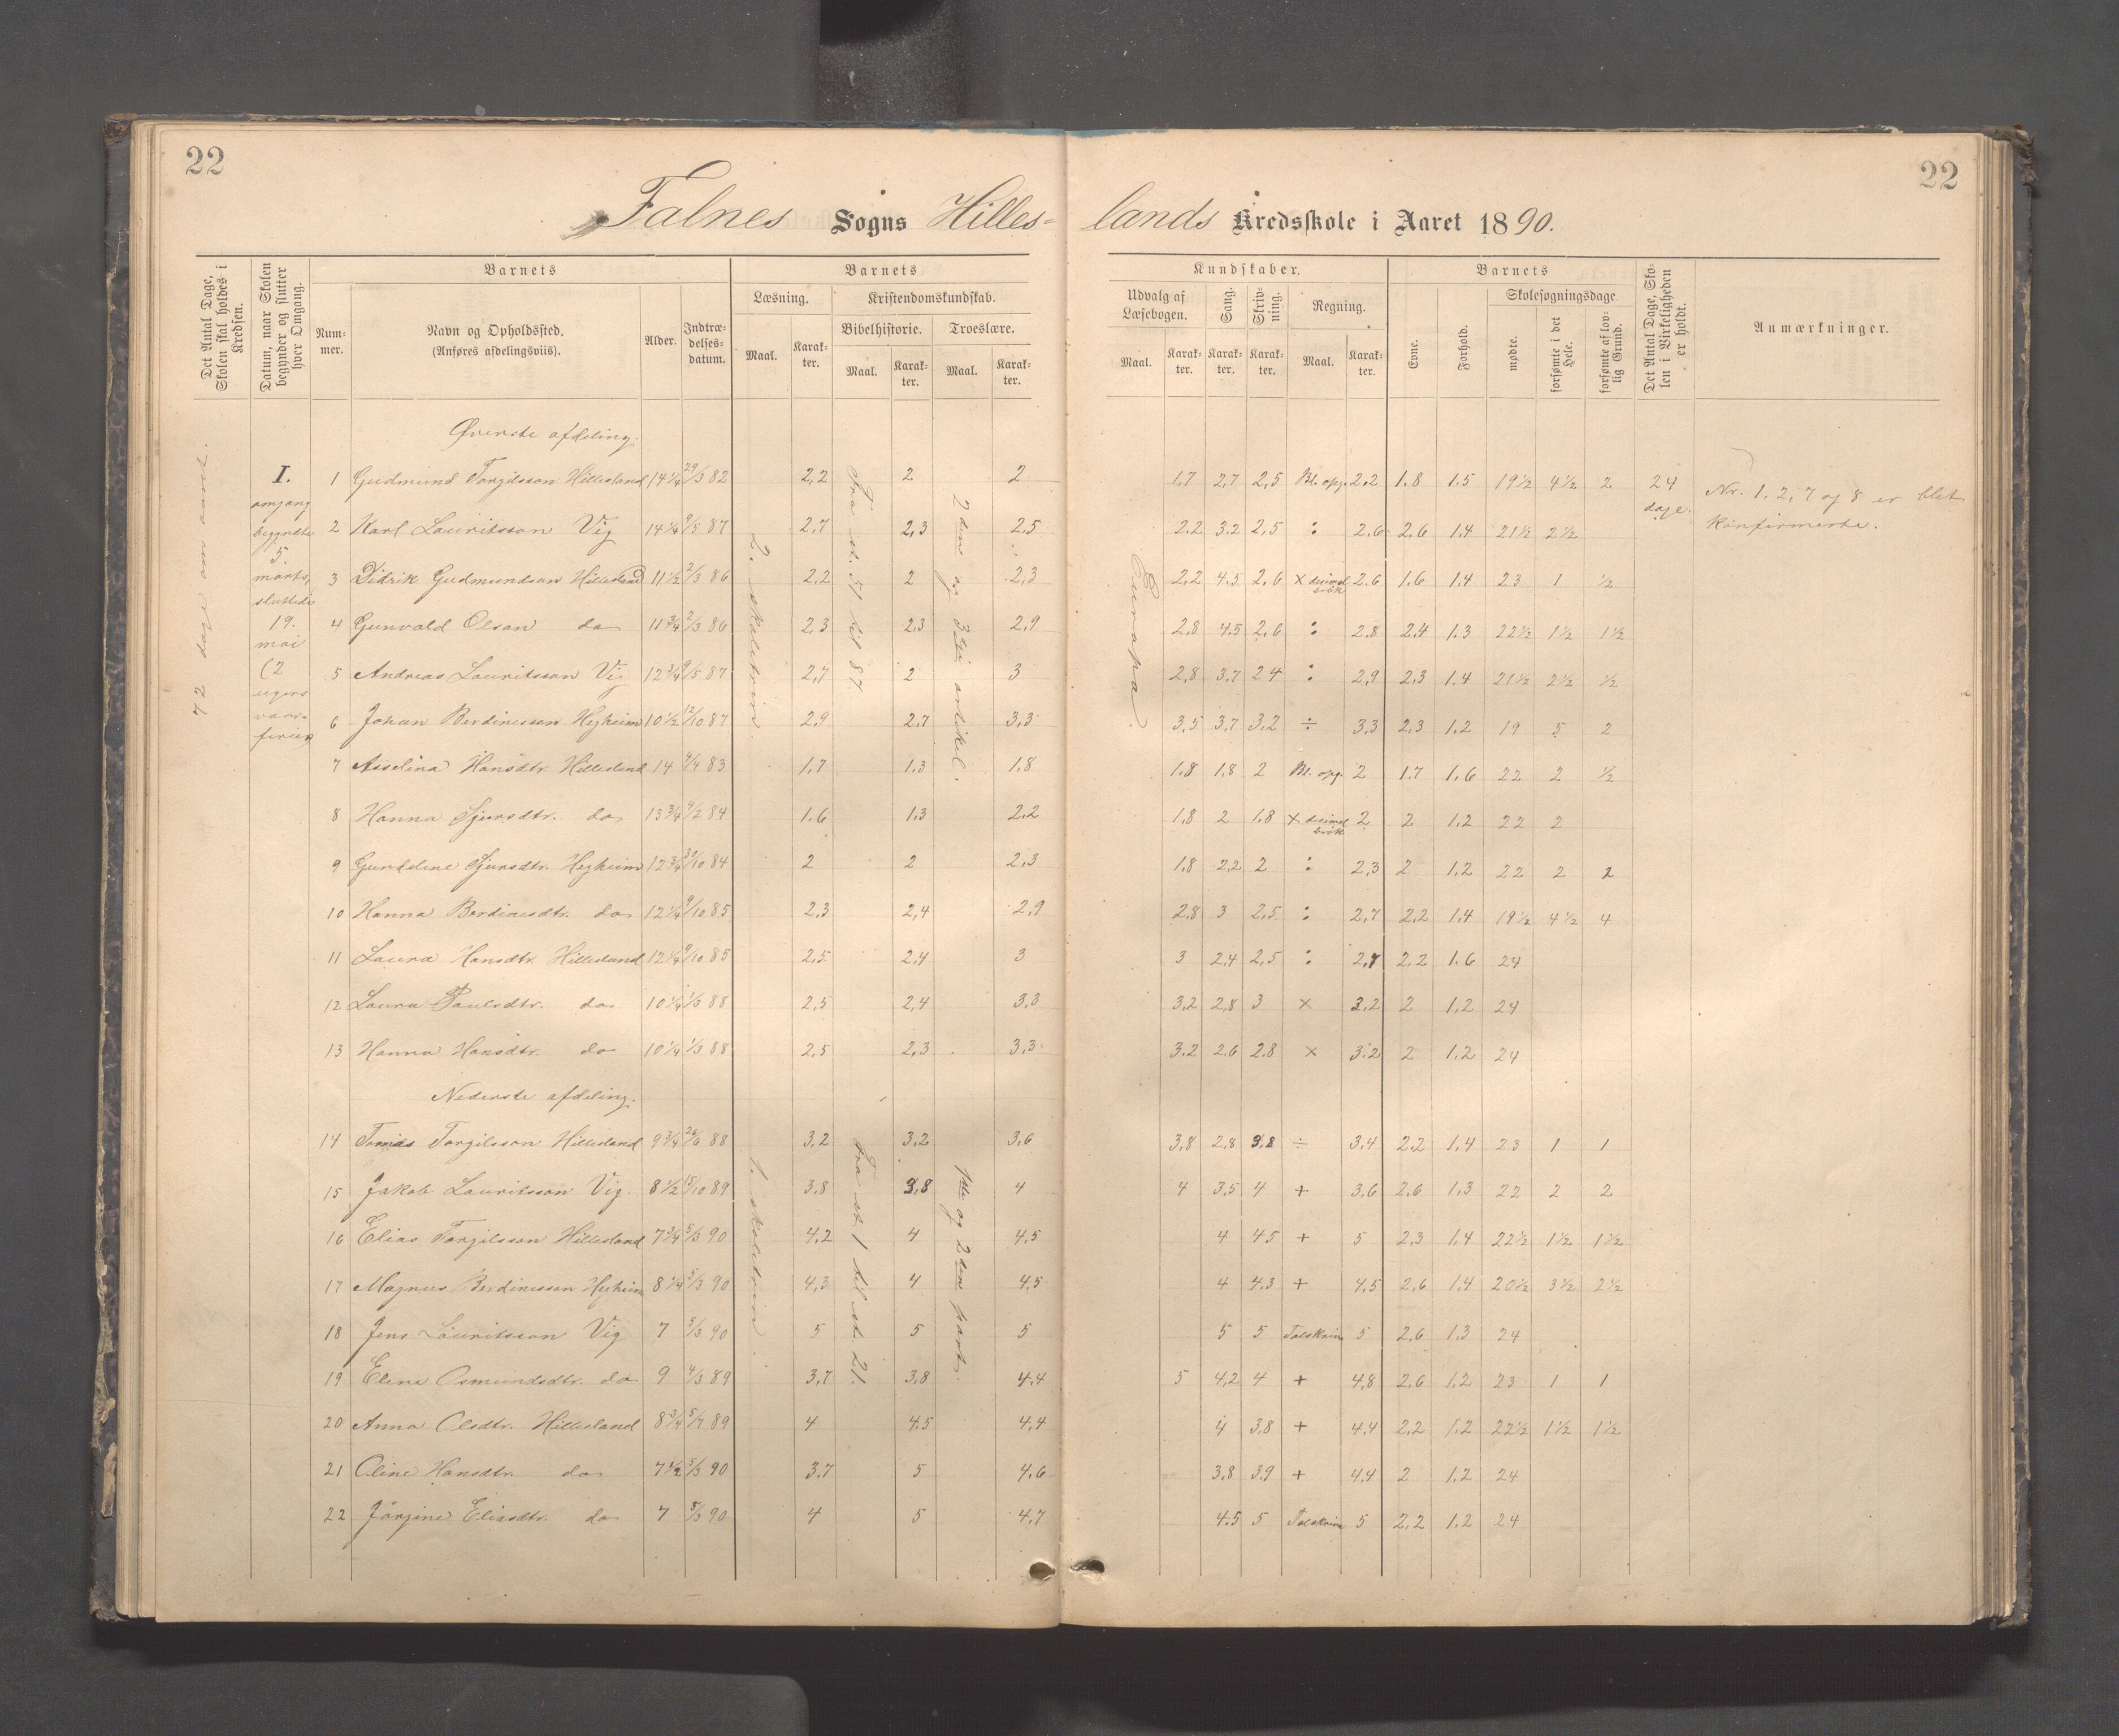 22
22
Falnes Sogns Hilles- lands Kredsskole i Aaret 1890.
Det Antal Dage, Skolen skal holdes i Kredsen.
Datum, naar Skolen begynder og slutter hver Omgang.
Barnets
Num-mer.
Navn og Opholdssted.
(Anføres afdelingsviis).
Alder.
Indtræ-delses-datum.
Barnets
Læsning.
Maal.
Karak-ter.
Kristendomskundskab.
Bibelhistorie.
Maal.
Karak-ter.
Troeslære.
Maal.
Karak-ter.
Kundskaber.
Udvalg af Læsebogen.
Maal.
Karak-ter.
Sang.
Karak-ter.
Skriv-ning.
Karak-ter.
Regning.
Maal.
Karak-ter.
Barnets
Evne.
Forhold.
Skolesøgningsdage
mødte.
forsømte i det Hele.
forsømte af lov-lig Grund.
Det Antal Dage, Sko-len i Virkeligheden er holdt.
Anmærkninger.
72 dage om aaret.
I. omgang begyndte 5. marts, sluttede 19. mai (2 ugers vaar-ferie)
2. skoletrin.
Fra st. 51 til 87.
2den og 3die artikel.
Europa.
Øverste afdeling.
1 Gudmund Torgilsson Hillesland 14 1/4 29/3 82 2,2 2 2 1.7 2,7 2,5 Bl. opg. 2.2 1.8 1.5 19 1/2 4 1/2 2 24 dage.
Nr. 1, 2, 7 og 8 er blet
konfirmerte.
2 Karl Lauritsson Vig 14 1/4 9/5 87 2,7 2,3 2,5 2.2 3.2 2,5 : 2.6 2,6 1.4 21 1/2 2 1/2
3 Didrik Gudmundson Hillesland 11 1/2 2/3 86 2,2 2 2,3 2,2 4.5 2,6 × desimal brøk 2.6 1.6 1.4 23 1 1/2
4 Gunvald Olson do 11 3/4 2/3 86 2,3 2,3 2,9 2,8 4.5 2,6 : 2.8 2.4 1.3 22 1/2 1 1/2 1 1/2
5 Andreas Lauritsson Vig 12 3/4 9/5 87 2,7 2 3 2,8 3.7 2 4 : 2,9 2,3 1.4 21 1/2 2 1/2 1/2
6 Johan Berdinesson Hegheim 10 1/2 12/10 87 2,9 2,7 3,3 3,5 3,7 3,2 ÷ 3.3 2,3 1.2 19 5 2
7 Asselina Hansdtr. Hillesland 14 4/4 83 1,7 1.3 1,8 1.8 1.8 2 Bl. opg. 2 1.7 1,6 22 2 1/2
8 Hanna Sjursdtr. do 13 3/4 4/2 84 1,6 1,3 2,2 1,8 2 1.8 × desimal brøk 2 2 1.2 22 2
9 Sjursdtr. Hegheim 12 3/4 30/10 84 2 2 2,3 1.8 2,2 2 : 2,3 2 1.2 22 2 2
10 Hanna Berdinesdtr. do 12 1/4 9/10 85 2,3 2,4 2,9 2.8 3 2,5 : 2,7 2,2 1,4 19 1/2 4 1/2 4
11 Laura Hansdtr. Hillesland 12 1/4 9/10 85 2,5 2,4 3 3 2,4 2,5 : 2,7 2.2 1.6 24
12 Laura Paulsdtr. do 10 1/4 1/3 88 2,5 2,4 3,3 3,2 2,8 3 × 3.2 2 1.2 24
13 Hanna Hansdtr. do 10 1/4 1/3 88 2,5 2,3 3,3 3.2 2.6 2.8 × 3.2 2 1.2 24
Nederste afdeling.
1. skoletrin.
Fra st. 1 til st. 21.
1ste og 2den part.
14 Tomas Torgilsson Hillesland 9 3/4 26/6 88 3,2 3,2 3,6 3,8 2,8 3,8 ÷ 3,4 2,2 1,4 23 1 1
15 Jakob Lauritsson Vig. 8 1/2 15/10 89 3,8 3,8 4 4 3,5 4 + 3,6 2,6 1,3 22 2 2
16 Elias Torgilsson Hillesland 7 3/4 5/3 90 4,2 4 4,5 4 4 5 + 5 2,3 1.4 22 1/2 1 1/2 1 1/2
17 Magnus Berdinesson Hegheim 8 1/4 5/3 90 4,3 4 4,5 4 4.3 + 4.5 2,6 1,4 20 1/2 3 1/2 2 1/2
18 Jens Lauritsson Vig 7 5/3 90 5 5 5 5 5 Talskriv. 5 2,6 1.3 24
19 Elene Osmundsdtr. do 9 4/3 89 3,7 3,8 4.4 5 4,2 4 + 4,8 2,6 1.2 23 1 1
20 Anna Olsdtr. Hillesland 8 3/4 5/7 89 4 4.5 4,4 4 3,8 + 4.4 2,2 1.2 22 1/2 1 1/2 1 1/2
21 Oline Hansdtr. do 7 1/2 5/3 90 3,7 5 4,6 3,8 3,9 + 4.4 2 1.2 24
22 Jørgine Eliasdtr. do 7 5/3 90 4 5 4,7 4.5 5 Talskriv. 5 2,2 1.2 24